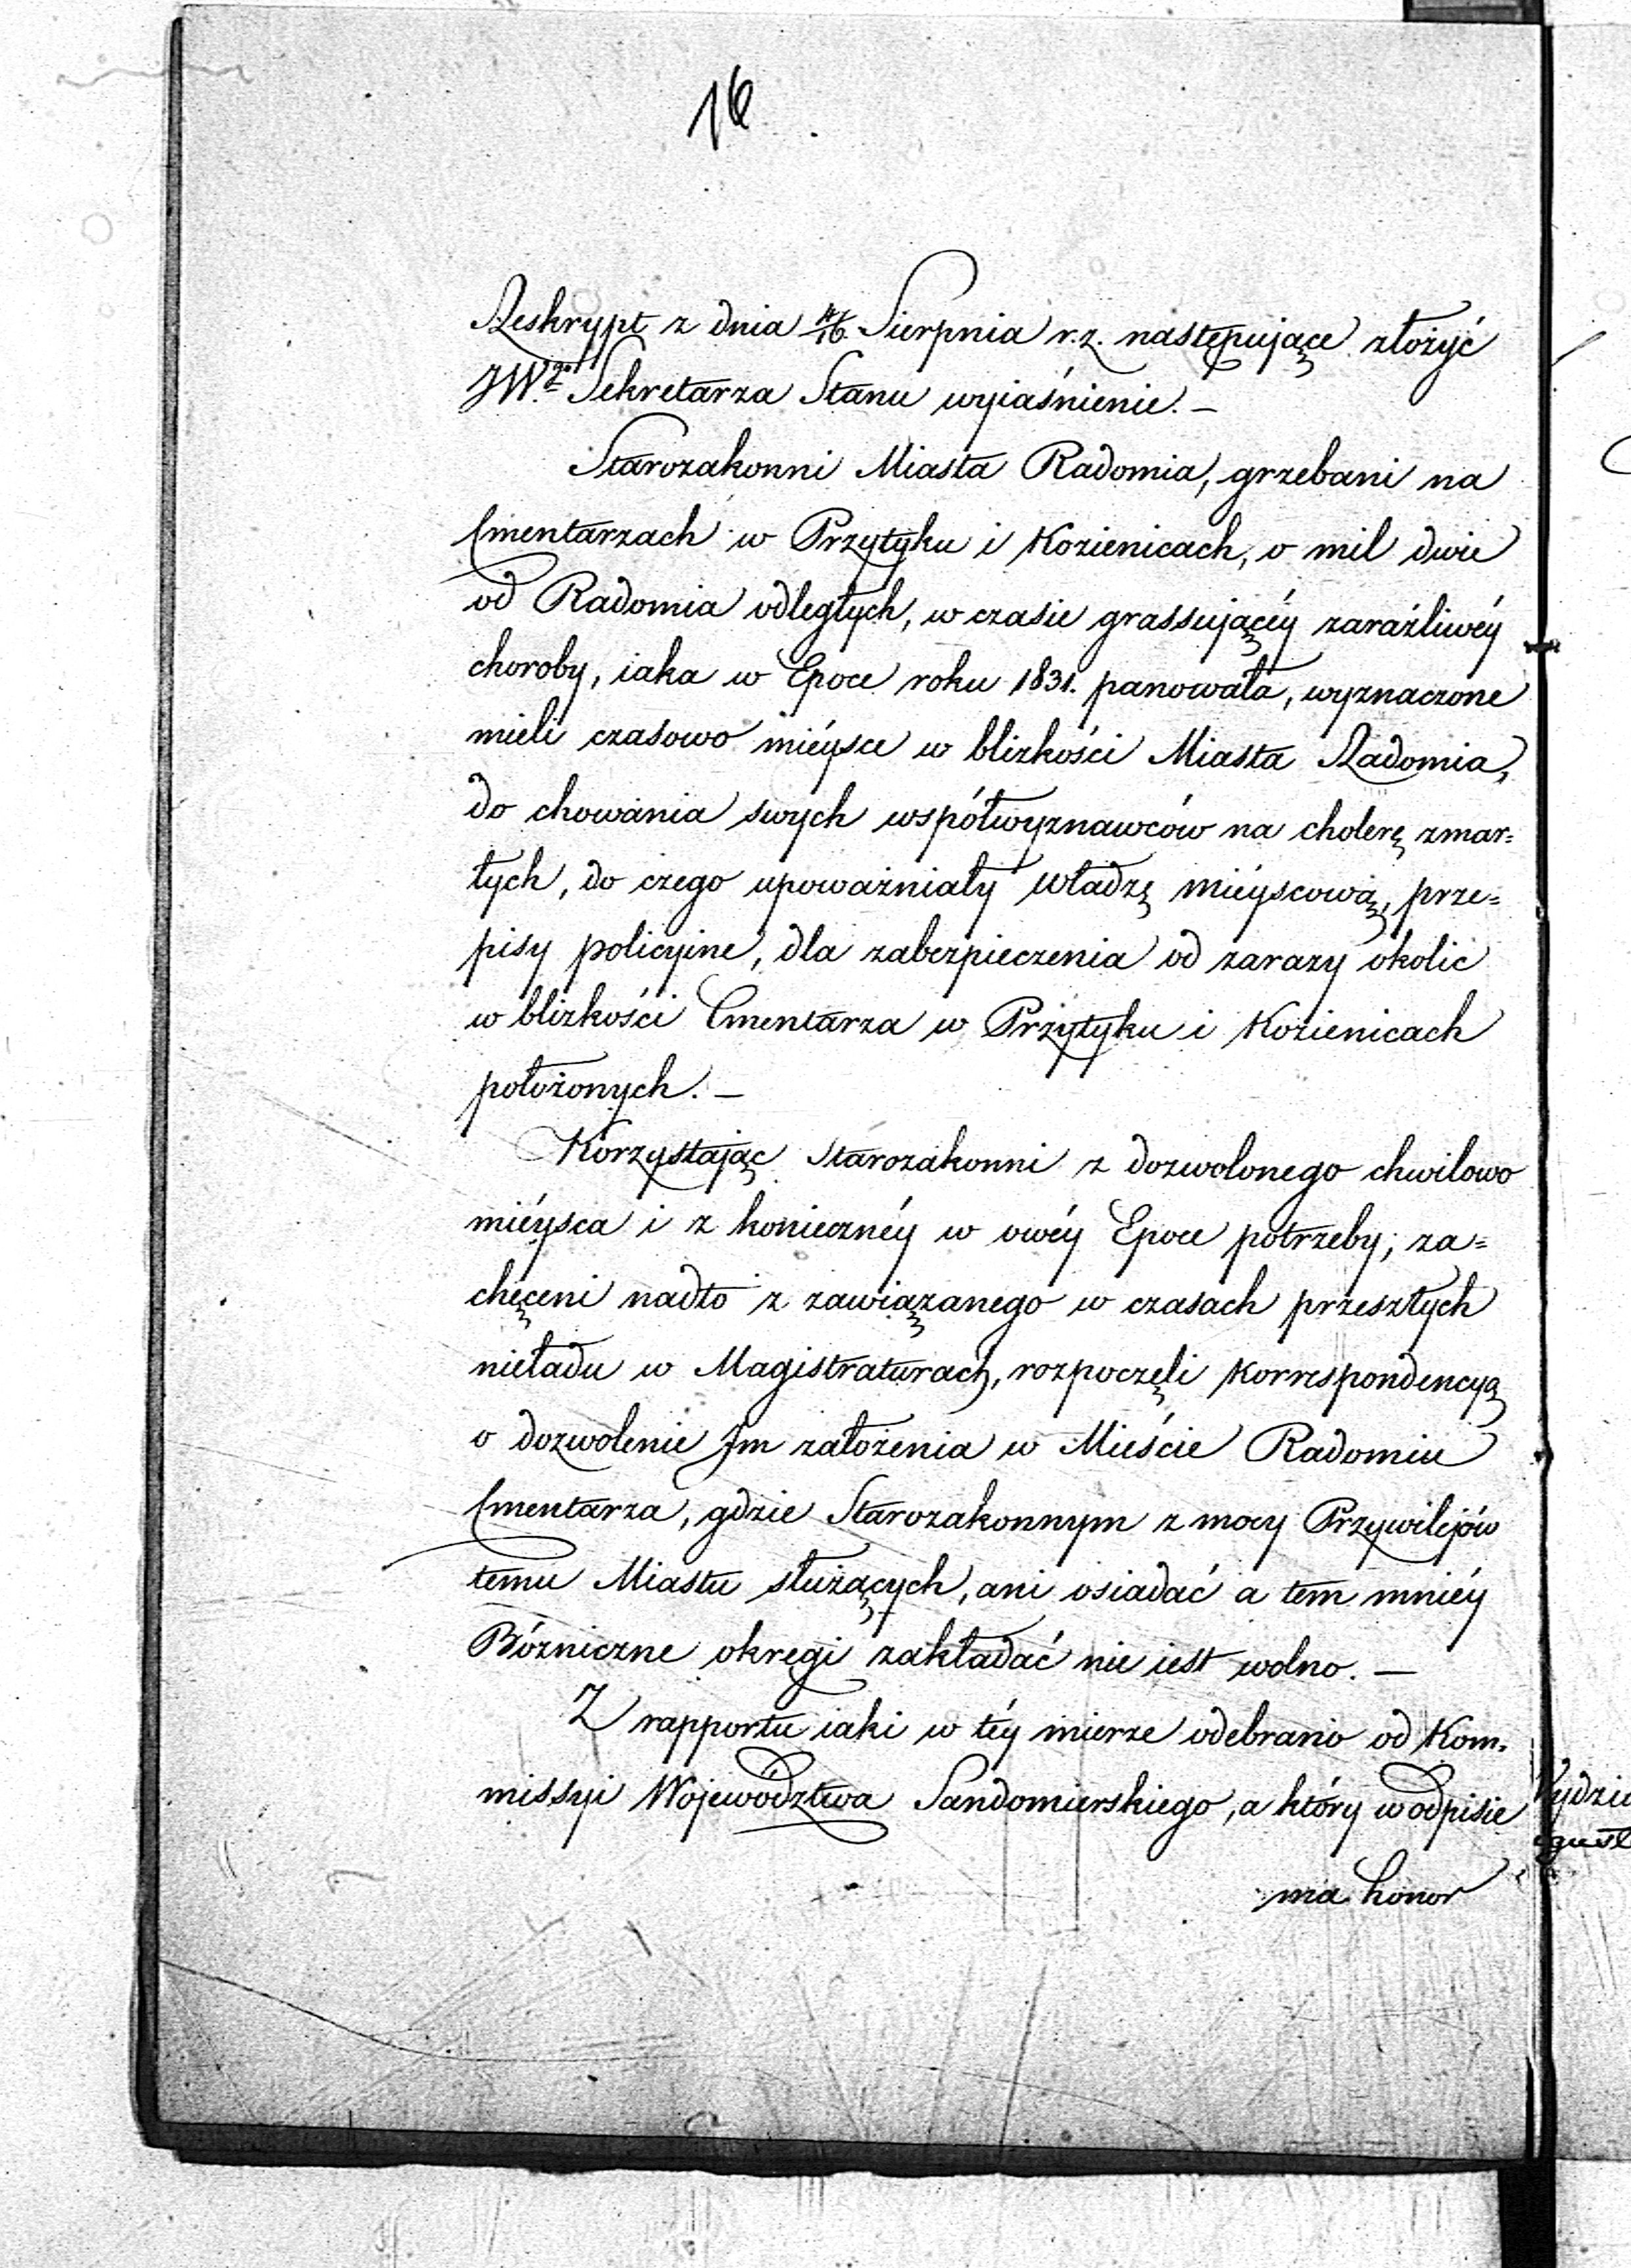 16
Reskrypt z dnia 4/16. Sierpnia r. z. następujące złożyć
JW.go Sekretarza Stanu wyiaśnienie. —
Starozakonni Miasta Radomia, grzebani na
Cmentarzach w Przytyku i Kozienicach, o mil dwie
od Radomia odległych, w czasie grassującéy zaraźliwéy
choroby, iaka w Epoce roku 1831. panowała, wyznaczone
mieli czasowo miéysce w blizkości Miasta Radomia,
do chowania swych współwyznawców na cholerę zmar=
łych, do czego upoważniały Władzę miéyscową, prze=
pisy policyine, dla zabezpieczenia od zarazy okolic
w blizkości Cmentarza w Przytyku i Kozienicach
położonych. —
Korzystając Starozakonni z dozwolonego chwilowo
miéysca i z koniecznéy w owéy Epoce potrzeby; za=
chęceni nadto z zawiązanego w czasach przeszłych
nieładu w Magistraturach, rozpoczęli Korrespondencyą
o dozwolenie Im założenia w Mieście Radomiu
Cmentarza, gdzie Starozakonnym z mocy Przywilejów
temu Miastu służących, ani osiadać a tem mniéy
Bózniczne okręgi zakładać nie iest wolno. —
Z rapportu iaki w téy mierze odebrano od Kom=
missyi Województwa Sandomierskiego, a który w odpisie
ma honor